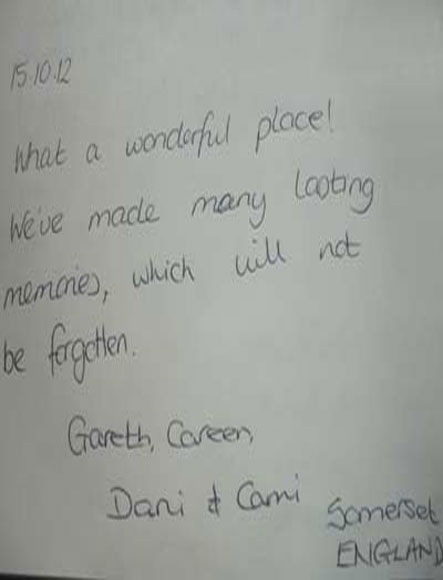 15.10.12
What a wonderful place!
We've made many lasting
memories, which will not
be forgotten.
Gareth, Careen,
Dani & Cami
Somerset
ENGLAND